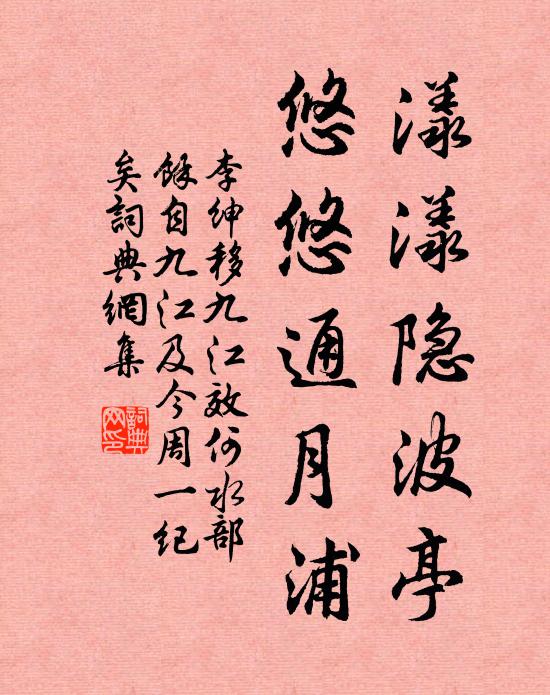 漾漾隐波亭
悠悠通月浦
李绅移九江效何水部
馀自九江及今周一纪
矣詞典網集
詞典
网印